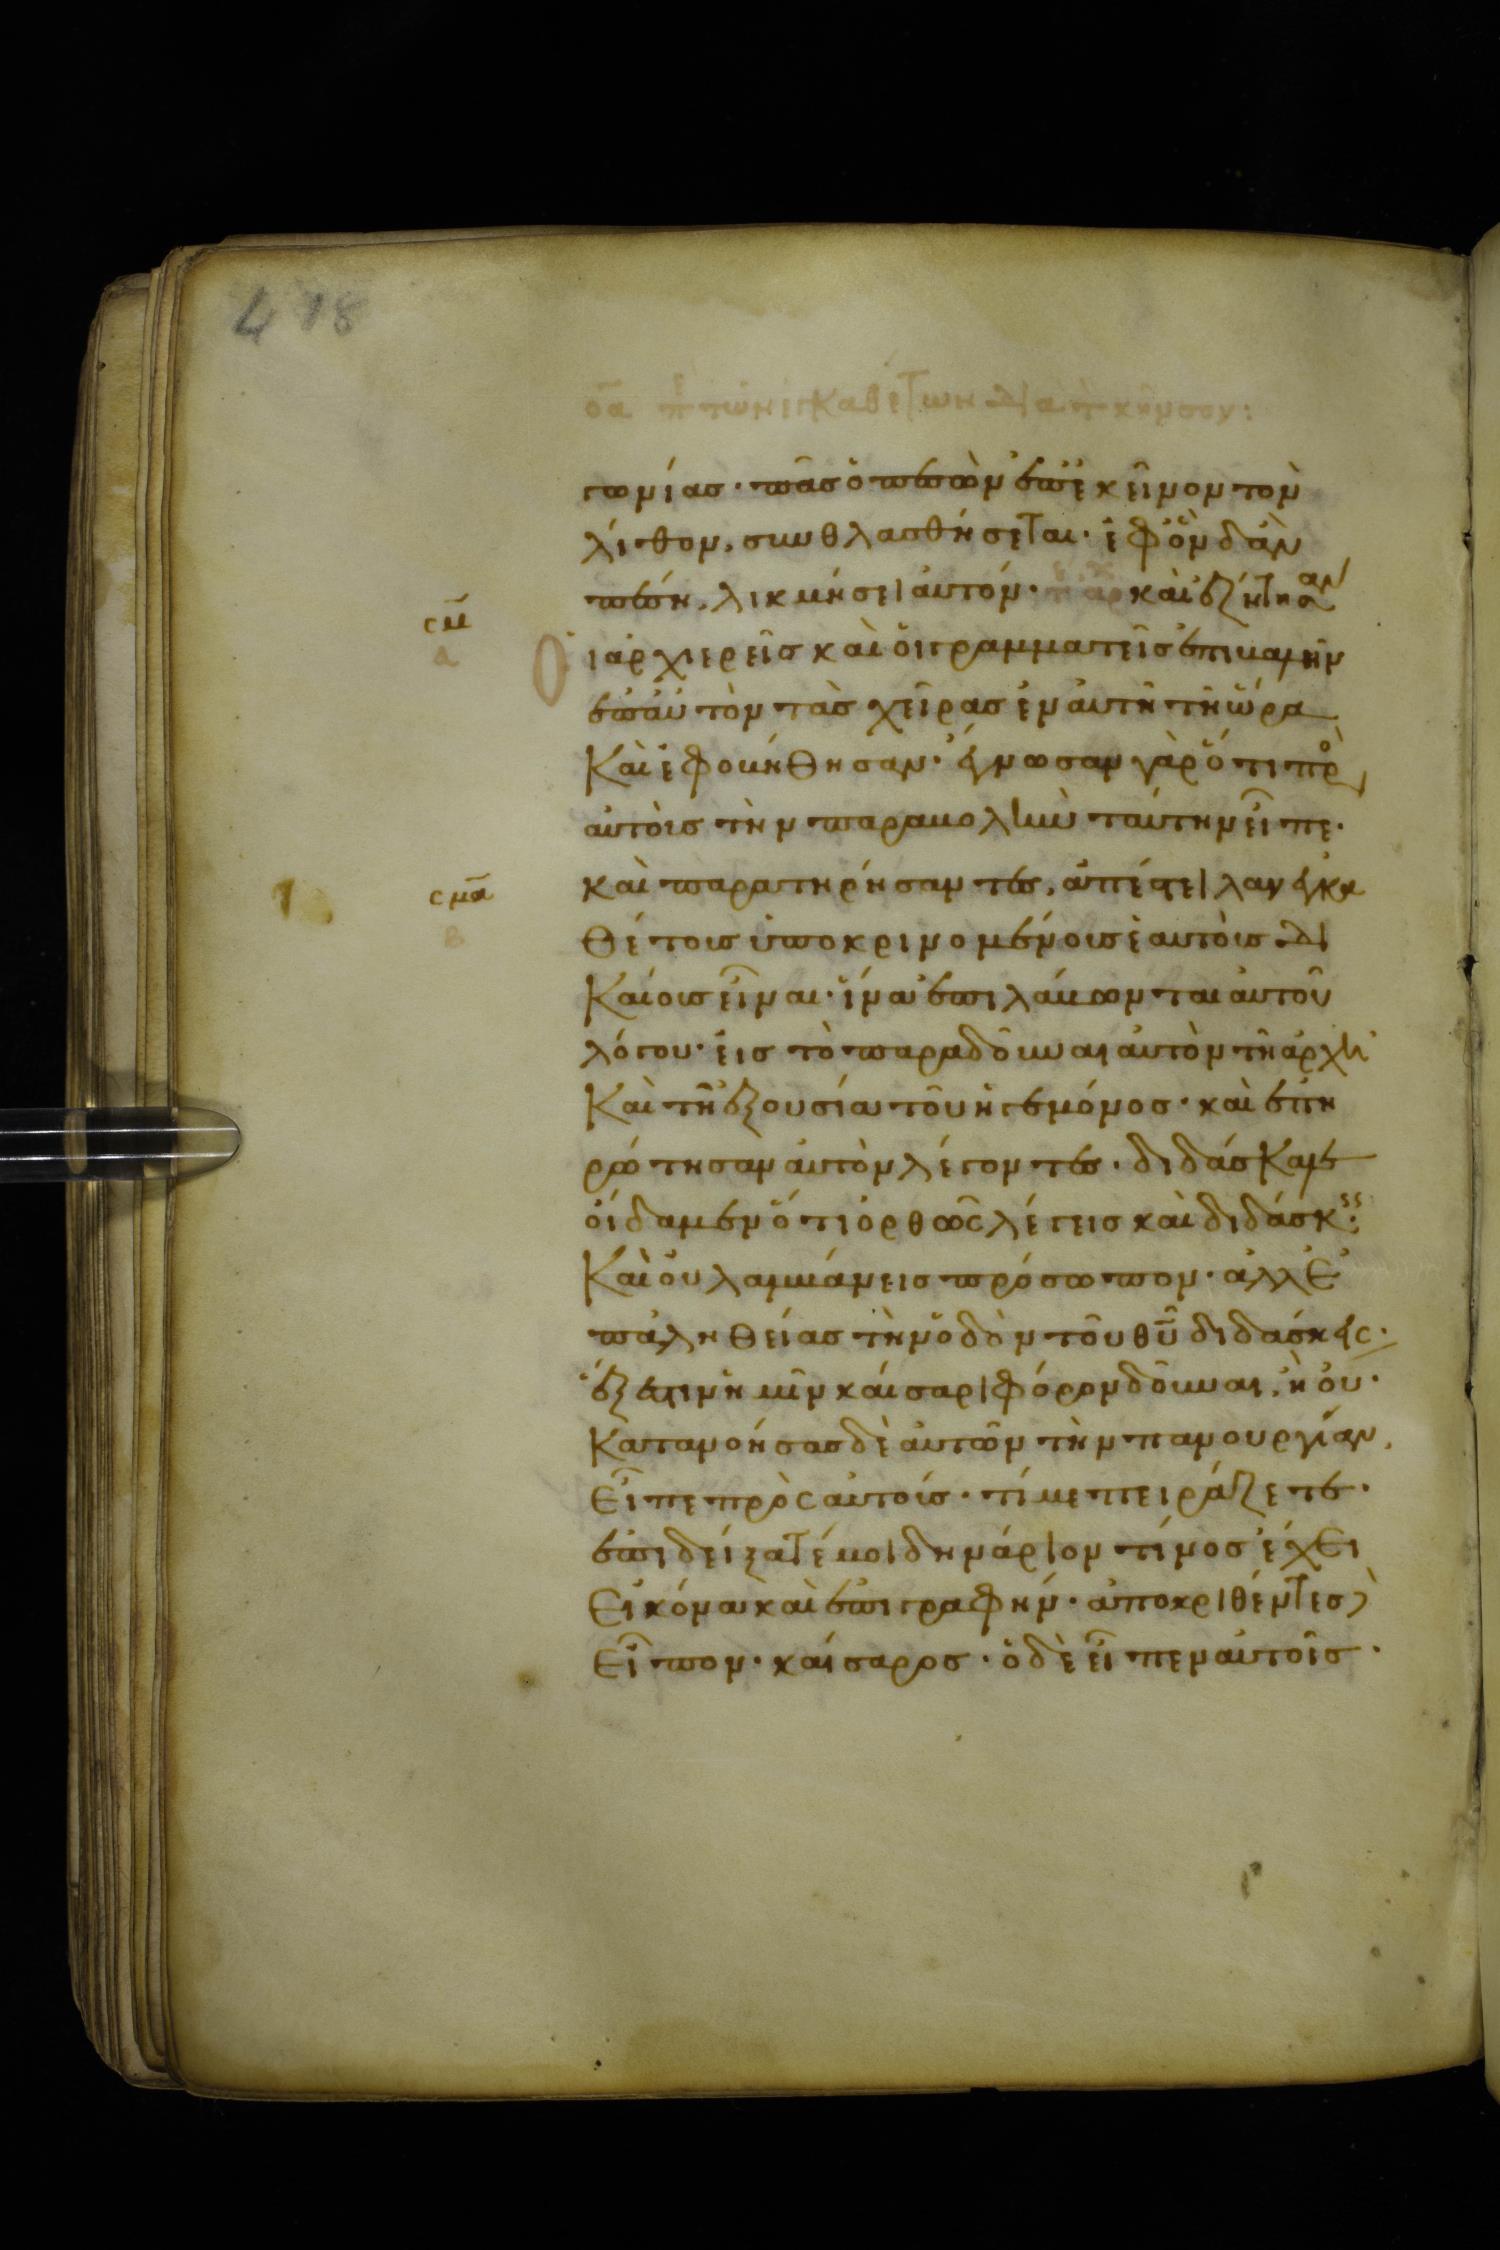 478
οα π τῶν ἐγκαθέτων διὰ τ κῆνσον:
γωνίας · πᾶς ὁ πεσὼν ἐπ' ἐκεῖνον τὸν
λίθον, συνθλασθήσεται · ἐφ' ὃν δ' ἂν
πέση, λικμήσει αὐτόν · καὶ ἐζήτησαν
σμ
α
οἱ ἀρχιερεῖς καὶ οἱ γραμματεῖς ἐπιβαλεῖν
ἐπ' αὐτὸν τὰς χεῖρας ἐν αὐτῆ τῆ ὥρα
Καὶ ἐφοβήθησαν · ἔγνωσαν γὰρ ὅτι πρὸ
αὐτοὺς τὴν παραβολὴν ταύτην εἶπε ·
σμα
β
καὶ παρατηρήσαντες, ἀπέστειλαν ἐγκα
θέτους ὑποκρινομένους ἑαυτοὺς δι
Καίους εἶναι · ἵνα ἐπιλάβωνται αὐτοῦ
λόγου · εἰς τὸ παραδοῦναι αὐτὸν τῆ ἀρχῆ
Καὶ τῆ ἐξουσία τοῦ ἡγεμόνος · καὶ ἐπη
ρώτησαν αὐτὸν λέγοντες · διδάσκαλε
οἴδαμεν ὅτι ὀρθῶς λέγεις καὶ διδάσκεις ·
Καὶ οὐ λαμβάνεις πρόσωπον · ἀλλ' ἐ
π' ἀληθείας τὴν ὁδὸν τοῦ θῦ διδάσκεις ·
ἔξεστιν ἡμῖν καίσαρι φόρον δοῦναι, ἢ οὔ ·
Κατανοήσας δὲ αὐτῶν τὴν πανουργίαν,
Εἶπε πρὸς αὐτούς · τί με πειράζετε ·
ἐπιδείξατέ μοι δηνάριον τίνος ἔχει
Εἰκόνα καὶ ἐπιγραφήν · ἀποκριθέντες δὲ
Εἶπον · καίσαρος · ὁ δὲ εἶπεν αὐτοῖς ·